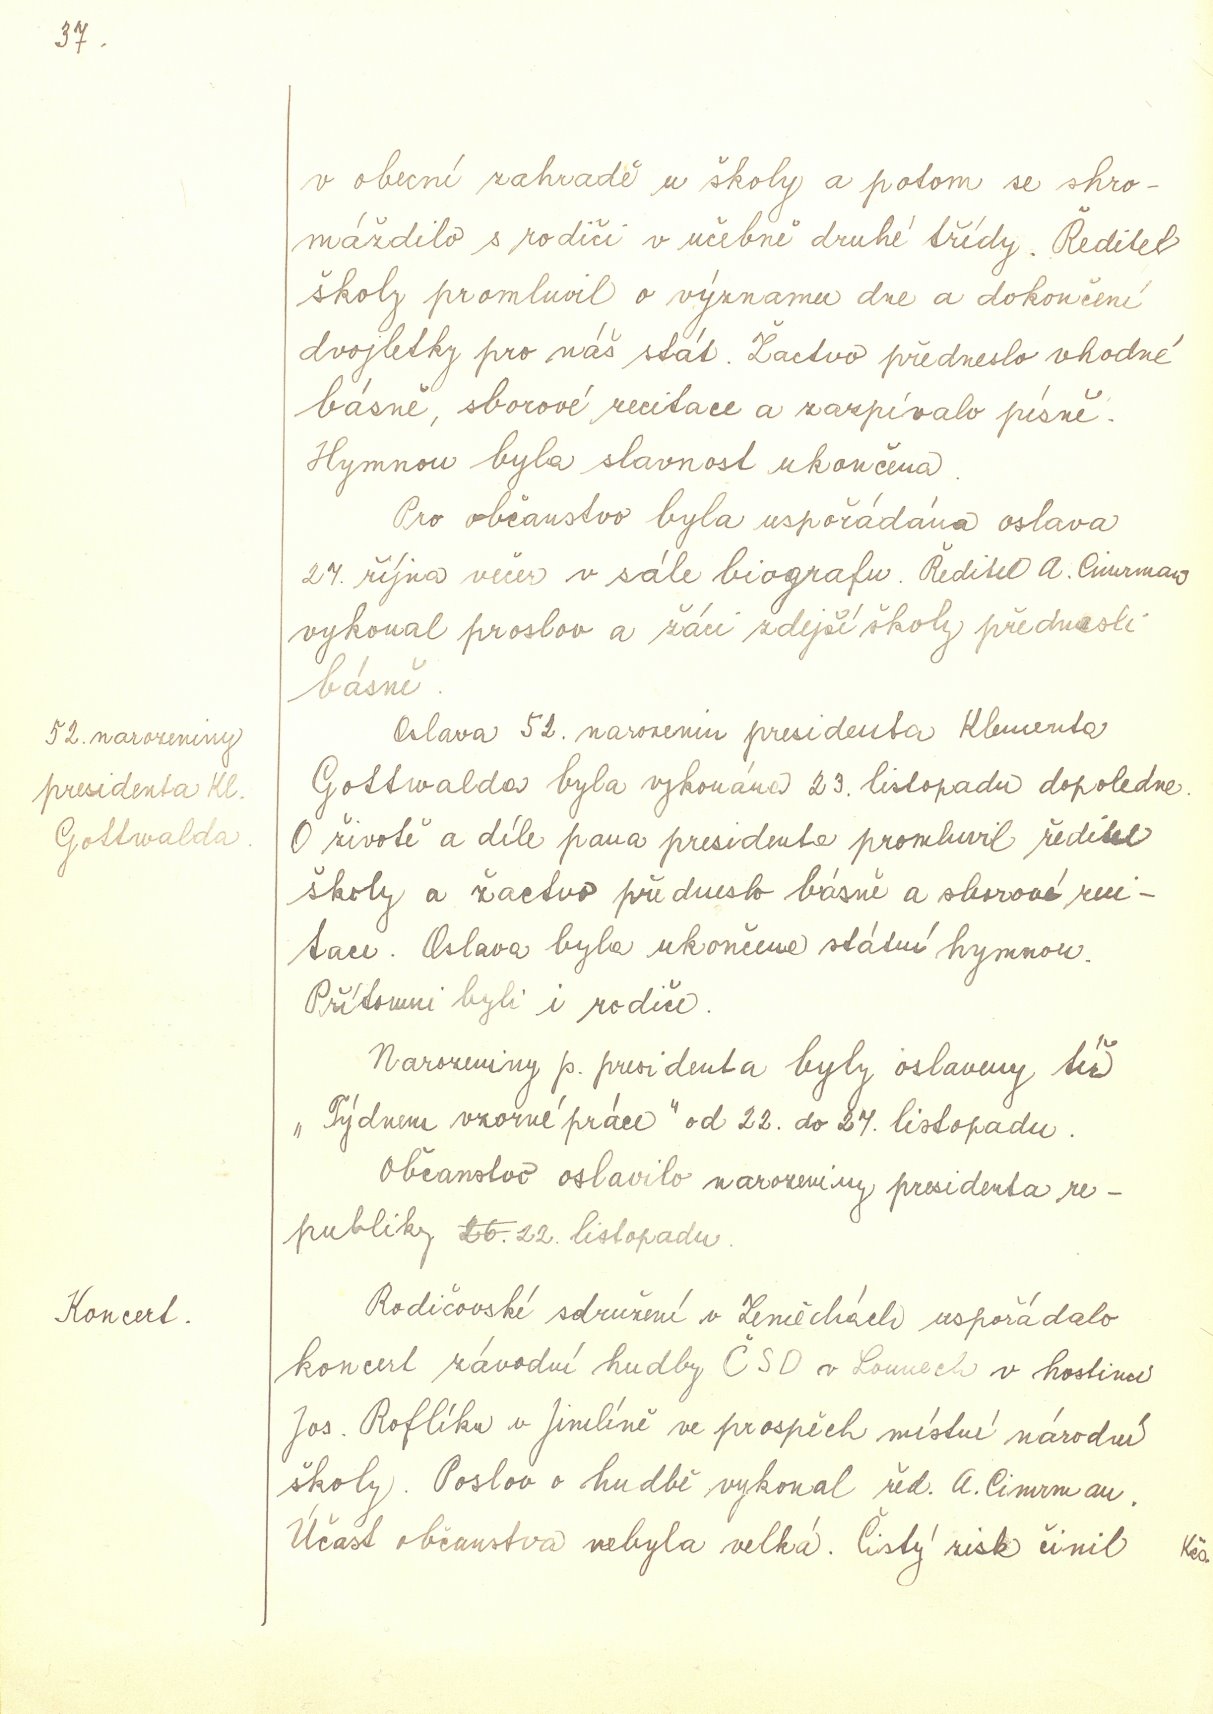 37.
v obecní zahradě u školy a potom se shro-
máždilo s rodiči v učebně druhé třídy. Ředitel
školy promluvil o významu dne a dokončení
dvojletky pro náš stát. Žactvo předneslo vhodné
básně, sborové recitace a zazpívalo písně.
Hymnou byla slavnost ukončena.
Pro občanstvo byla uspořádána oslava
27. října večer v sále biografu. Ředitel A. Cimrman
vykonal proslov a žáci zdejší školy přednesli
básně.
52. narozeniny
presidenta Kl.
Gottwalda.
Oslava 52. narozenin presidenta Klementa
Gottwalda byla vykonána 23. listopadu dopoledne.
O životě a díle pana presidenta promluvil ředitel
školy a žactvo předneslo básně a sborové reci-
tace. Oslava byla ukončena státní hymnou.
Přítomni byli i rodiče.
Narozeniny p. presidenta byly oslaveny též
„Týdnem vzorné práce" od 22. do 27. listopadu.
Občanstvo oslavilo narozeniny presidenta re-
publiky 22. listopadu.
Koncert.
Rodičovské sdružení v Zeměchách uspořádalo
koncert závodní hudby ČSD v Lounech v hostinci
Jos. Roflíka v Jimlíně ve prospěch místní národní
školy. Poslov o hudbě vykonal řed. A. Cimrman.
Účast občanstva nebyla velká. Čistý zisk činil Kčs.